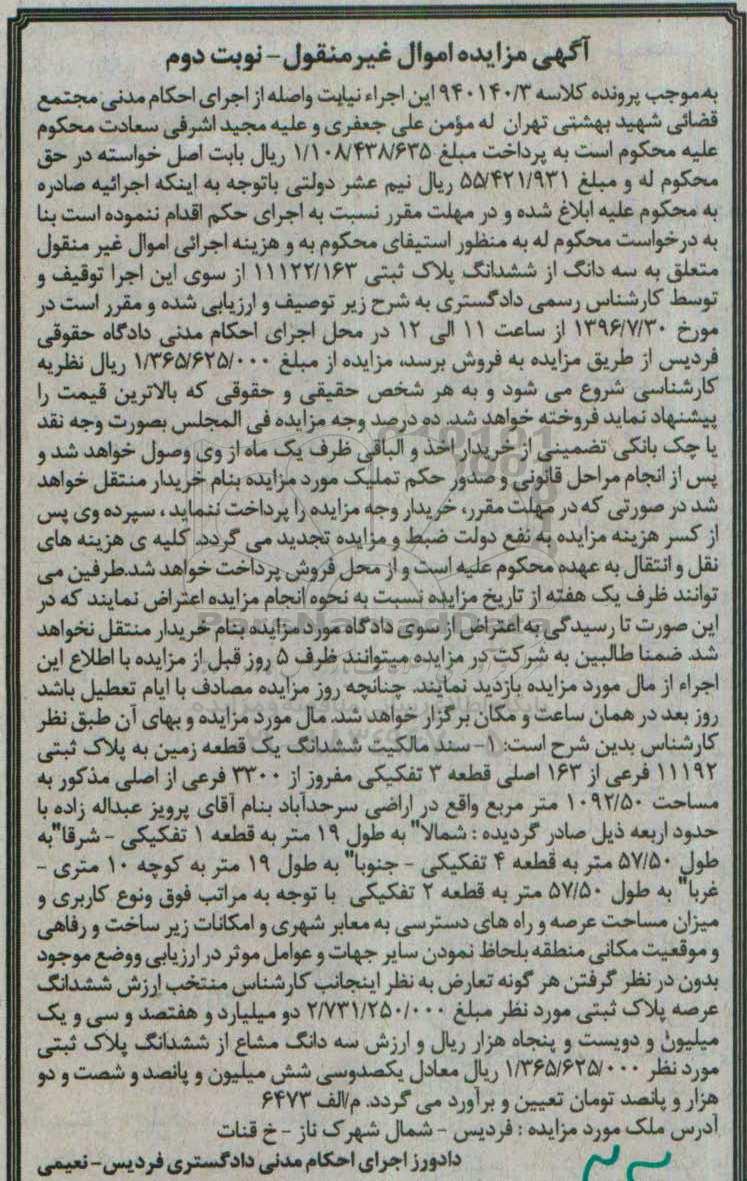 آگهی مزایده اموال غیرمنقول - نوبت دوم
به‌موجب پرونده کلاسه ۹۴۰۱۴۰/۳ این اجراء نیابت واصله از اجرای احکام مدنی مجتمع
قضائی شهید بهشتی تهران له مؤمن علی جعفری و علیه مجید اشرفی سعادت محکوم
علیه محکوم است به پرداخت مبلغ ۱/۱۰۸/۴۳۸/۶۳۵ ریال بابت اصل خواسته در حق
محکوم له و مبلغ ۵۵/۴۲۱/۹۳۱ ریال نیم عشر دولتی باتوجه به اینکه اجرائیه صادره
به محکوم علیه ابلاغ شده و در مهلت مقرر نسبت به اجرای حکم اقدام ننموده است بنا
به درخواست محکوم له به منظور استیفای محکوم به و هزینه اجرائی اموال غیر منقول
متعلق به سه دانگ از ششدانگ پلاک ثبتی ۱۱۱۲۲/۱۶۳ از سوی این اجرا توقیف و
توسط کارشناس رسمی دادگستری به شرح زیر توصیف و ارزیابی شده و مقرر است در
مورخ ۱۳۹۶/۷/۳۰ از ساعت ۱۱ الی ۱۲ در محل اجرای احکام مدنی دادگاه حقوقی
فردیس از طریق مزایده به فروش برسد، مزایده از مبلغ ۱/۳۶۵/۶۲۵/۰۰۰ ریال نظریه
کارشناسی شروع می شود و به هر شخص حقیقی و حقوقی که بالاترین قیمت را
پیشنهاد نماید فروخته خواهد شد. ده درصد وجه مزایده فی المجلس بصورت وجه نقد
یا چک بانکی تضمینی از خریدار اخذ و الباقی ظرف یک ماه از وی وصول خواهد شد و
پس از انجام مراحل قانونی و صدور حکم تملیک مورد مزایده بنام خریدار منتقل خواهد
شد در صورتی که در مهلت مقرر، خریدار وجه مزایده را پرداخت ننماید ، سپرده وی پس
از کسر هزینه مزایده به نفع دولت ضبط و مزایده تجدید می گردد. کلیه ی هزینه های
نقل و انتقال به عهده محکوم علیه است و از محل فروش پرداخت خواهد شد.طرفین می
توانند ظرف یک هفته از تاریخ مزایده نسبت به نحوه انجام مزایده اعتراض نمایند که در
این صورت تا رسیدگی به اعتراض از سوی دادگاه مورد مزایده بنام خریدار منتقل نخواهد
شد. ضمنا طالبین به شرکت در مزایده میتوانند ظرف ۵ روز قبل از مزایده با اطلاع این
اجراء از مال مورد مزایده بازدید نمایند. چنانچه روز مزایده مصادف با ایام تعطیل باشد
روز بعد در همان ساعت و مکان برگزار خواهد شد. مال مورد مزایده و بهای آن طبق نظر
کارشناس بدین شرح است: ۱- سند مالکیت ششدانگ یک قطعه زمین به پلاک ثبتی
۱۱۱۹۲ فرعی از ۱۶۳ اصلی قطعه ۳ تفکیکی مفروز از ۳۳۰۰ فرعی از اصلی مذکور به
مساحت ۱۰۹۲/۵۰ متر مربع واقع در اراضی سرحدآباد بنام آقای پرویز عبداله زاده با
حدود اربعه ذیل صادر گردیده : شمالا" به طول ۱۹ متر به قطعه ۱ تفکیکی - شرقا"به
طول ۵۷/۵۰ متر به قطعه ۴ تفکیکی - جنوبا" به طول ۱۹ متر به کوچه ۱۰ متری -
غربا" به طول ۵۷/۵۰ متر به قطعه ۲ تفکیکی با توجه به مراتب فوق ونوع کاربری و
میزان مساحت عرصه و راه های دسترسی به معابر شهری و امکانات زیر ساخت و رفاهی
و موقعیت مکانی منطقه بلحاظ نمودن سایر جهات و عوامل موثر در ارزیابی ووضع موجود
بدون در نظر گرفتن هر گونه تعارض به نظر اینجانب کارشناس منتخب ارزش ششدانگ
عرصه پلاک ثبتی مورد نظر مبلغ ۲/۷۳۱/۲۵۰/۰۰۰ دو میلیارد و هفتصد و سی و یک
میلیون و دویست و پنجاه هزار ریال و ارزش سه دانگ مشاع از ششدانگ پلاک ثبتی
مورد نظر ۱/۳۶۵/۶۲۵/۰۰۰ ریال معادل یکصدوسی شش میلیون و پانصد و شصت و دو
هزار و پانصد تومان تعیین و برآورد می گردد. م/الف ۶۴۷۳
آدرس ملک مورد مزایده : فردیس - شمال شهرک ناز - خ قنات
دادورز اجرای احکام مدنی دادگستری فردیس- نعیمی